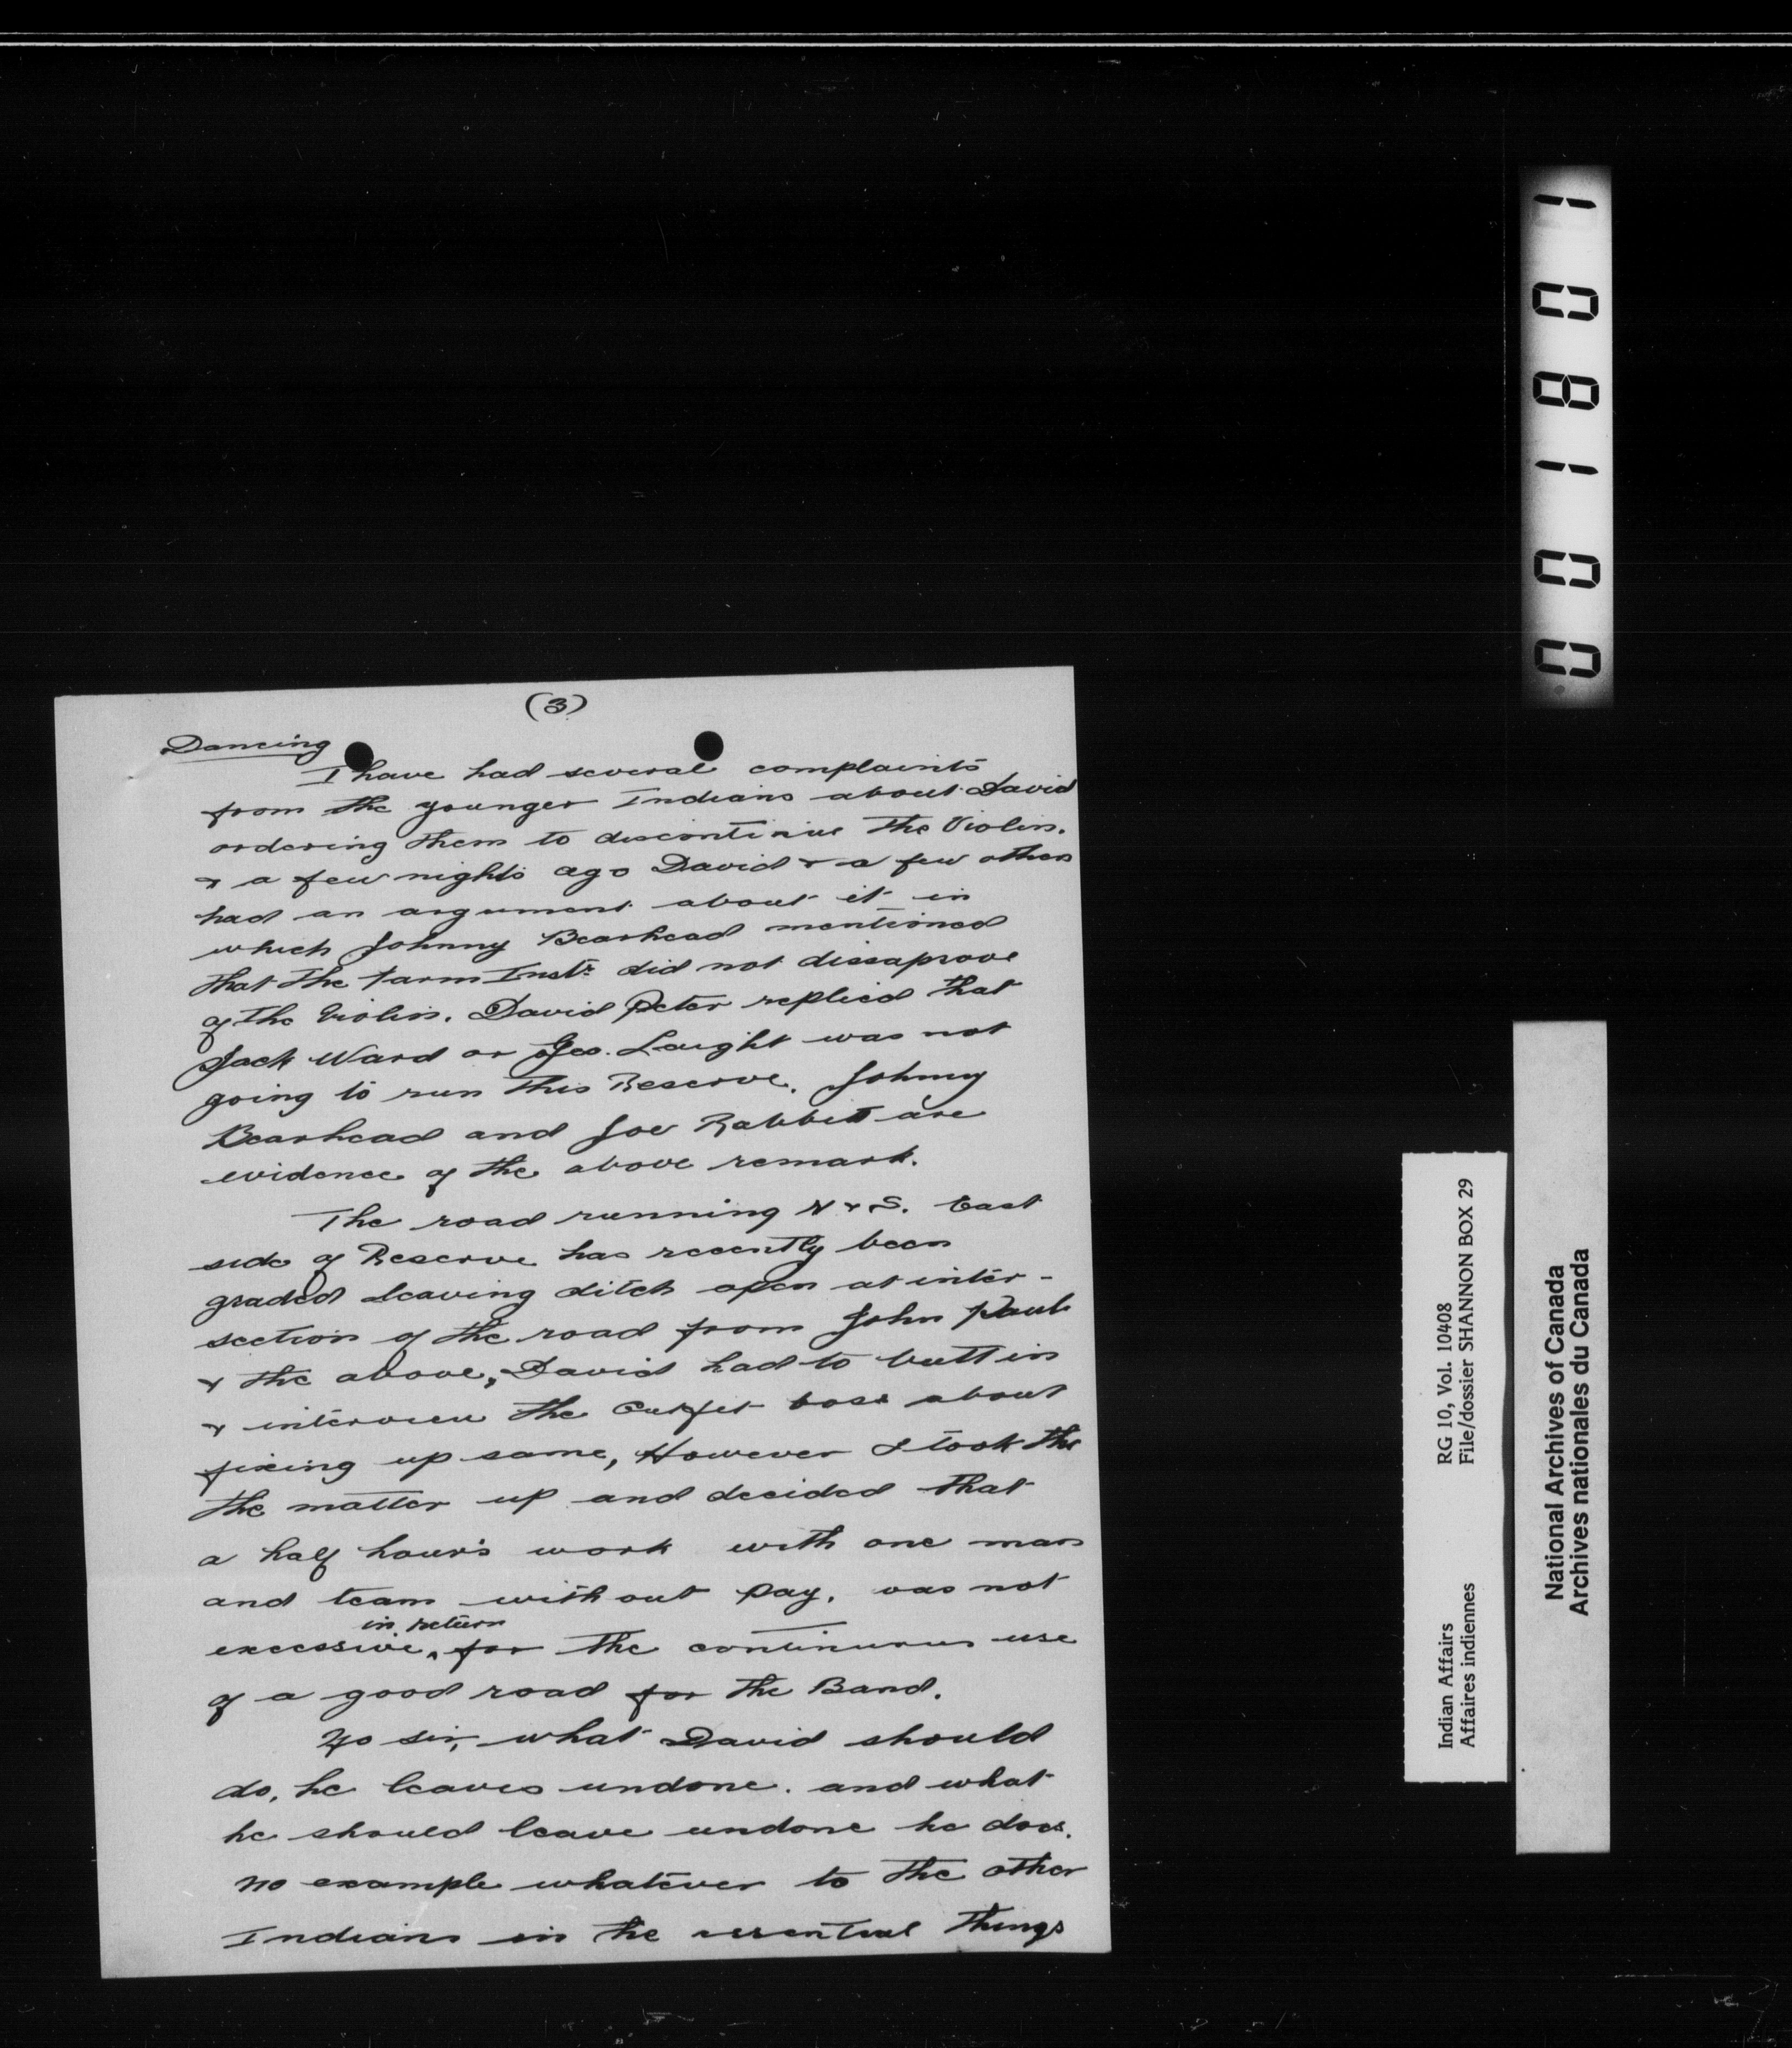 (3)
Dancing
I have had several complaints
from the younger Indians about David
ordering them to discontinue the Violin.
& a few nights ago David & a few others
had an argument about it in
which Johnny Bearhead mentioned
that the Farm Instr. did not dissaprove
of the Violin. David Peter replied that
Jack Ward or Geo. Laight was not
going to run this Reserve. Johnny
Bearhead and Joe Rabbitt are
evidence of the above remark.
The road running N & S. East
side of Reserve has recently been
graded leaving ditch open at inter-
section of the road from John Paul
& the above, David had to butt in
& interview the Outfit boss about
fixing up same, However I took the
the matter up and decided that
a half hour's work with one man
and team without pay, was not
in return
excessive, for the continuous use
of a good road for the Band.
sir, what David should
do, he leaves undone. and what
he should leave undone he does.
no example whatever to the other
Indians in the essential things
0 0 1 8 0 1
Indian Affairs RG 10, Vol. 10408
Affaires indiennes File/dossier SHANNON BOX 29
National Archives of Canada
Archives nationales du Canada